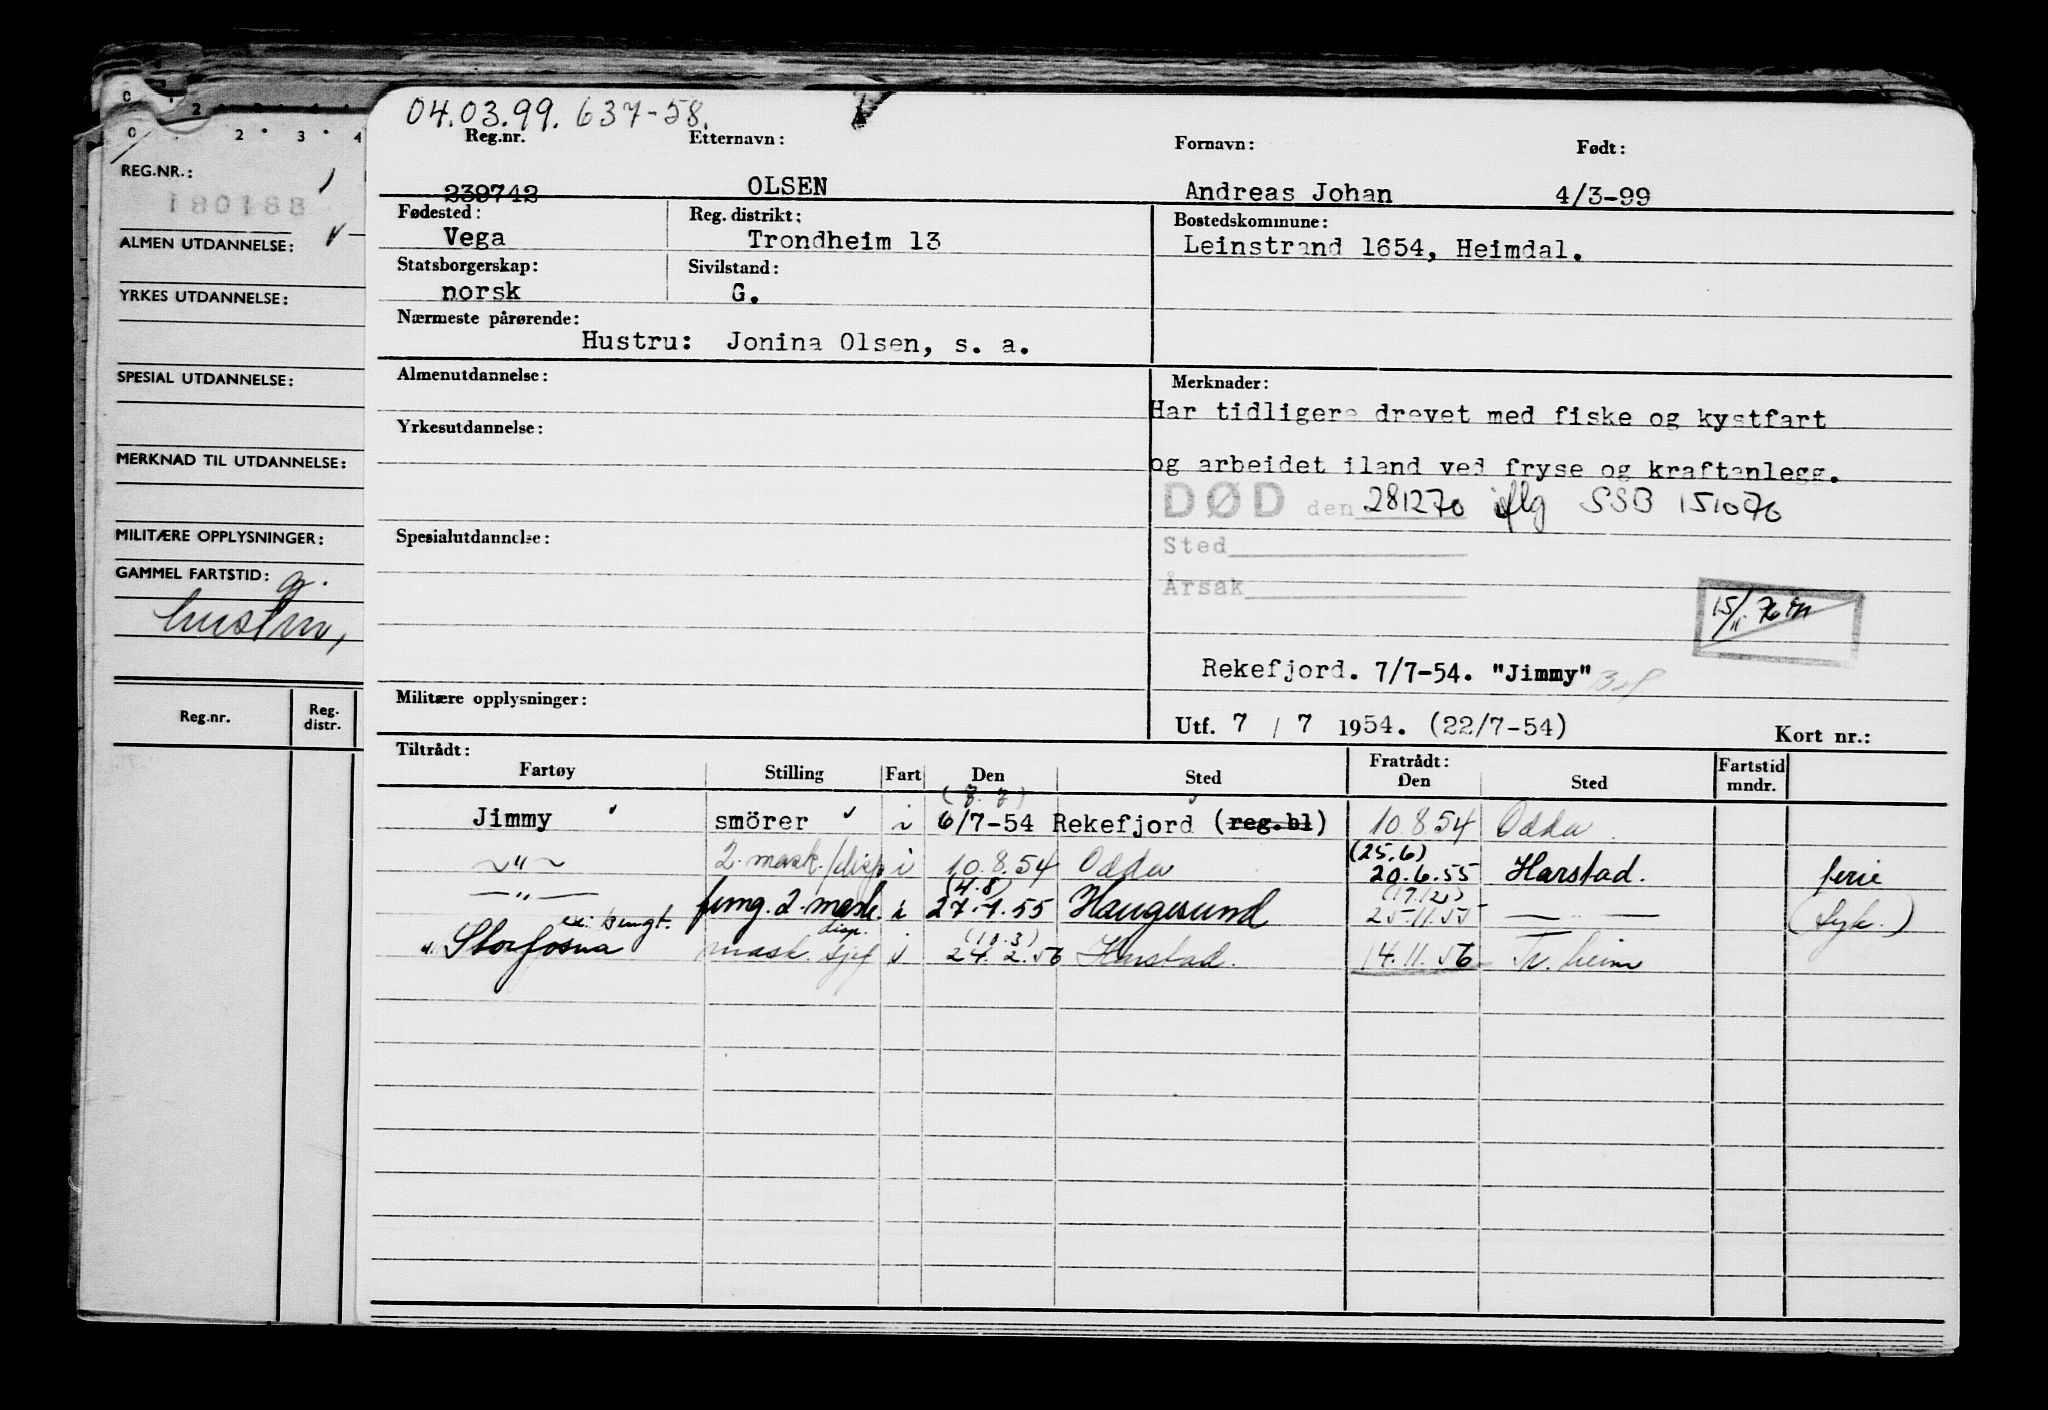 0 2
0 2 3 4
REG.NR.:
180188
ALMEN UTDANNELSE:
YRKES UTDANNELSE:
SPESIAL UTDANNELSE:
MERKNAD TIL UTDANNELSE:
MILITÆRE OPPLYSNINGER:
GAMMEL FARTSTID:
Reg.nr. Reg. distr.
04.03.99. 637-58.
Reg.nr. Etternavn: Fornavn: Født:
239742 OLSEN Andreas Johan 4/3-99
Fødested: Reg. distrikt: Bostedskommune:
Vega Trondheim 13 Leinstrand 1654, Heimdal.
Statsborgerskap: Sivilstand:
norsk G.
Nærmeste pårørende:
Hustru: Jonina Olsen, s. a.
Almenutdannelse: Merknader:
Har tidligere drevet med fiske og kystfart
Yrkesutdannelse:
og arbeidet iland ved fryse og kraftanlegg.
DØD den 281270 iflg SSB 151076
Spesialutdannelse: Sted
Årsak
15/11 76
Rekefjord. 7/7-54. "Jimmy"
Militære opplysninger:
Utf. 7 / 7 1954. (22/7-54) Kort nr.:
Tiltrådt: Fratrådt:
Fartøy Stilling Fart Den Sted Den Sted Fartstid mndr.
(7.7)
Jimmy smörer i 6/7-54 Rekefjord (reg.bl) 10.8.54 Odda
—"— 2. mask./disp i 10.8.54 Odda (25.6) 20.6.55 Harstad. ferie
—"— fung. 2. mask. i (4.8) 27.7.55 Haugesund (17.12) 25.11.55 —"— (Syk.)
ex: Bengt. disp. (10.3)
Storfosna mask. sjef i 24.2.56 Harstad. 14.11.56 Tr.heim